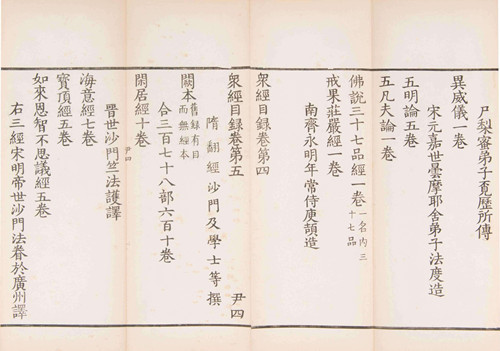 尸梨蜜弟子覓歷所傳
異威儀一卷
宋元嘉世曇摩耶舍弟子法度造
五明論五卷
五凡夫論一卷
佛說三十七品經一卷 一名內三十七品
戒果莊嚴經一卷
南齊永明年常侍庾頡造
衆經目録卷第四
衆經目録卷第五 尹四
隋翻經沙門及學士等撰
闕本 舊録有目而無經本
合三百七十八部六百十卷
閑居經十卷
尹四
晉世沙門竺法護譯
海意經七卷
寳頂經五卷
如來恩智不思議經五卷
右三經宋明帝世沙門法眷於廣州譯